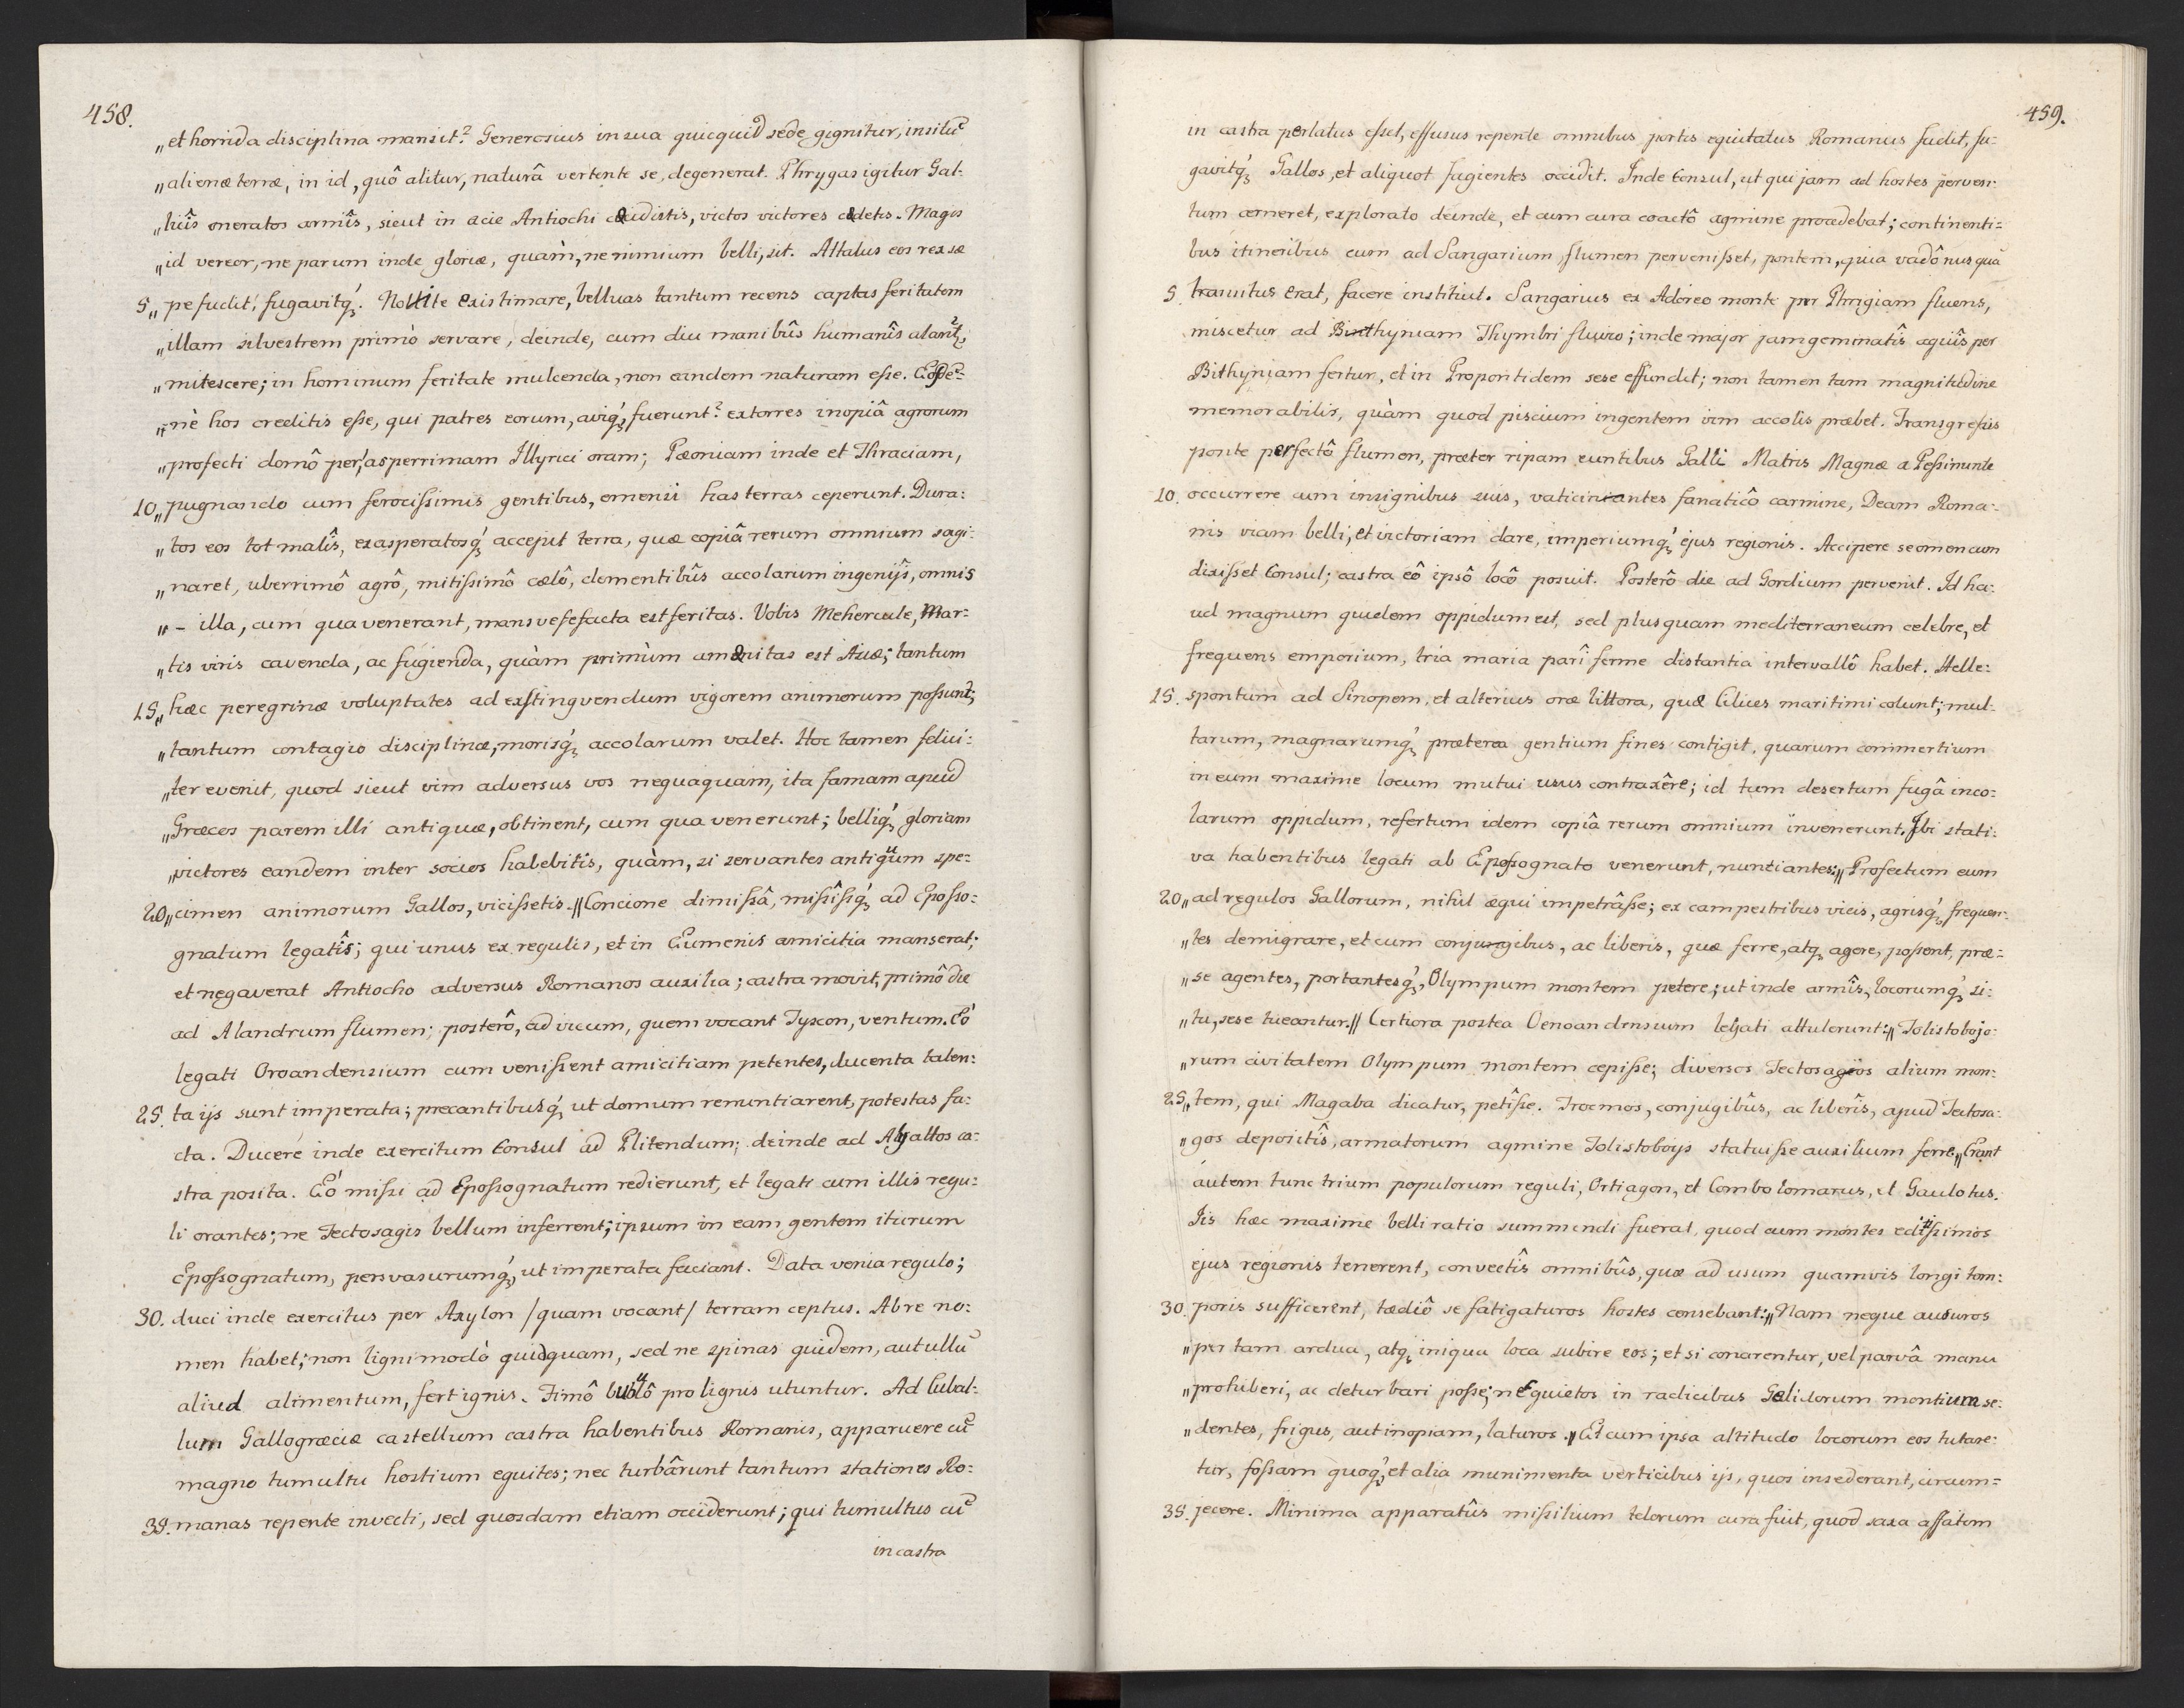 458.
„et horrida disciplina mansit? Generosius in sua quicquid sede gignitur, insitũ
„alienæ terræ, in id, quô alitur, naturâ vertente se, degenerat. Phrygas igitur Gal-
„licîs oneratos armîs, sicut in acie Antiochi cæcidistis, victos victores cædetis. Magis
„id vereor, ne parum inde gloriæ, quàm, ne nimium belli, sit. Attalus eos rex sæ
5„ pe fudit, fugavitq́ꝫ. Nolite existimare, belluas tantum recens captas feritatem
„illam silvestrem primò servare, deinde, cum diu manibûs humanîs alant̃ꝫ,
„mitescere; in hominum feritate mulcenda, non eandem naturam eſse. Eosde-
„nè hos creditis eſse, qui patres eorum, aviq́ꝫ fuerunt? extorres inopiâ agrorum
„profecti domô per, asperrimam Illyrici oram; Pæoniam inde et Thraciam,
10„ pugnando cum ferociſsimis gentibus, emensi has terras ceperunt. Dura-
„tos eos tot malîs, exasperatosq́ꝫ accepit terra, quæ copiâ rerum omnium sagi-
„naret, uberrimô agrô, mitiſsimô cælô, clementibûs accolarum ingenijs, omnis
„- illa, cum qua venerant, mansvefefacta est feritas. Vobis Mehercule, Mar-
„tis viris cavenda, ac fugienda, quàm primùm amænitas est Asiæ; tantum
15„ hæc peregrinæ voluptates ad exstingvendum vigorem animorum poſsunt;
„tantum contagio disciplinæ, morisq́ꝫ accolarum valet. Hoc tamen felici-
„ter evenit, quod sicut vim adversus vos nequaquam, ita famam apud
„Græcos parem illi antiquæ, obtinent, cum qua venerunt; belliq́ꝫ gloriam
„victores eandem inter socios habebitis, quàm, si servantes antiquum spe-
20„cimen animorum Gallos, viciſsetis.// Concione dimiſsâ, miſsîsq́ꝫ ad Epoſso-
gnatum legatîs; qui unus ex regulis, et in Eumenis amicitia manserat;
et negaverat Antiocho adversus Romanos auxilia; castra movit, primô die
ad Alandrum flumen; posterô, ad vicum, quem vocant Tyscon, ventum. Eó
legati Oroandensium cum veniſsent amicitiam petentes, ducenta talen-
25. ta ijs sunt imperata; precantibusq́ꝫ ut domum renuntiarent, potestas fa-
cta. Ducere inde exercitum Consul ad Plitendum; deinde ad Alyattos ca-
stra posita. Eó miſsi ad Epoſsognatum redierunt, et legati cum illis regu-
li orantes; ne Tectosagis bellum inferrent; ipsum in eam gentem iturum
Epoſsognatum, persvasurumq́ꝫ, ut imperata faciant. Data venia regulo;
30. duci inde exercitus per Axylon /quam vocant/ terram ceptus. Ab re no-
men habet; non ligni modò quidquam, sed ne spinas quidem, aut ullũ
aliud alimentum, fert ignis. Fimô bubulô pro lignis utuntur. Ad Cubal-
lum Gallogræciæ castellum castra habentibus Romanis, apparuere cũ
magno tumultu hostium equites; nec turbârunt tantum stationes Ro-
35. manas repente invecti, sed quosdam etiam occiderunt; qui tumultus cũ
in castra
459.
in castra perlatus eſset, effusus repente omnibus portis equitatus Romanus fudit, fu-
gavitq́ꝫ Gallos, et aliquot fugientes occidit. Inde Consul, ut qui jam ad hostes perven-
tum cerneret, explorato deinde, et cum cura coactô agmine procedebat; continenti-
bus itineribus cum ad Sangarium flumen perveniſset, pontem, quia vadô nusquã
5. transitus erat, facere instituit. Sangarius ex Adoreo monte per Phrigiam fluens,
miscetur ad Binthyniam Thymbri fluvio; inde major jam geminatîs aquîs per
Bithyniam fertur, et in Propontidem sese effundit; non tamen tam magnitudine
memorabilis, quàm quod piscium ingentem vim accolis præbet. Transgreſsis
ponte perfectô flumen, præter ripam euntibus Galli Matris Magnæ a Peſsinunte
10. occurrere cum insignibus suis, vaticinantes fanaticô carmine, Deam Roma-
nis viam belli, et victoriam dare, imperiumq́ꝫ ejus regionis. Accipere se omen cum
dixiſset Consul; castra eô ipsô locô posuit. Posterô die ad Gordium pervenit. Id ha-
ud magnum quidem oppidum est, sed plusquam mediterraneum celebre, et
frequens emporium, tria maria parî ferme distantia intervallô habet. Helle-
15. spontum ad Sinopem, et alterius oræ littora, quæ Cilices maritimi colunt; mul-
tarum, magnarumq́ꝫ præterea gentium fines contigit, quarum commertium
in eum maxime locum mutui usus contraxêre; id tum desertum fugâ inco-
larum oppidum, refertum idem copiâ rerum omnium invenerunt. Ibi stati-
va habentibus legati ab Epoſsognato venerunt, nuntiantes:„ Profectum eum
20„ ad regulos Gallorum, nihil æqui impetrâſse; ex campestribus vicis, agrisq́ꝫ frequen-
„tes demigrare, et cum conjugibus, ac liberis, quæ ferre, atqꝫ agere, poſsent, præ-
„se agentes, portantesq́ꝫ, Olympum montem petere; ut inde armîs, locorumq́ꝫ si-
„tu, sese tueantur.// Certiora postea Oenoandensium legati attulerunt:„ Tolistobojo-
„rum civitatem Olympum montem cepiſse; diversos Tectosagios alium mon-
25„ tem, qui Magaba dicatur, petîſse. Trocmos, conjugibûs, ac liberîs, apud Tectosa-
„gos depositîs, armatorum agmine Tolistobojs statuiſse auxilium ferre„ Erant
autem tunc trium populorum reguli, Ortiagon, et Combolomarus, et Gaulotus.
Iis hæc maxime belli ratio summendi fuerat, quod cum montes editiſsimos
ejus regionis tenerent, convectîs omnibûs, quæ ad usum quamvis longi tem-
30. poris sufficerent, tædiô se fatigaturos hostes censebant:„ Nam neque ausuros
„per tam ardua, atqꝫ iniqua loca subire eos; et si conarentur, vel parvâ manu
„prohiberi, ac deturbari poſse; nec quietos in radicibus Gelidorum montium se-
„dentes, frigus, aut inopiam, laturos.„ Et cum ipsa altitudo locorum eos tutare-
tur, foſsam quoq́ꝫ, et alia munimenta verticibus ijs, quos insederant, circum-
35. jecere. Minima apparatûs miſsilium telorum cura fuit, quod saxa affatim